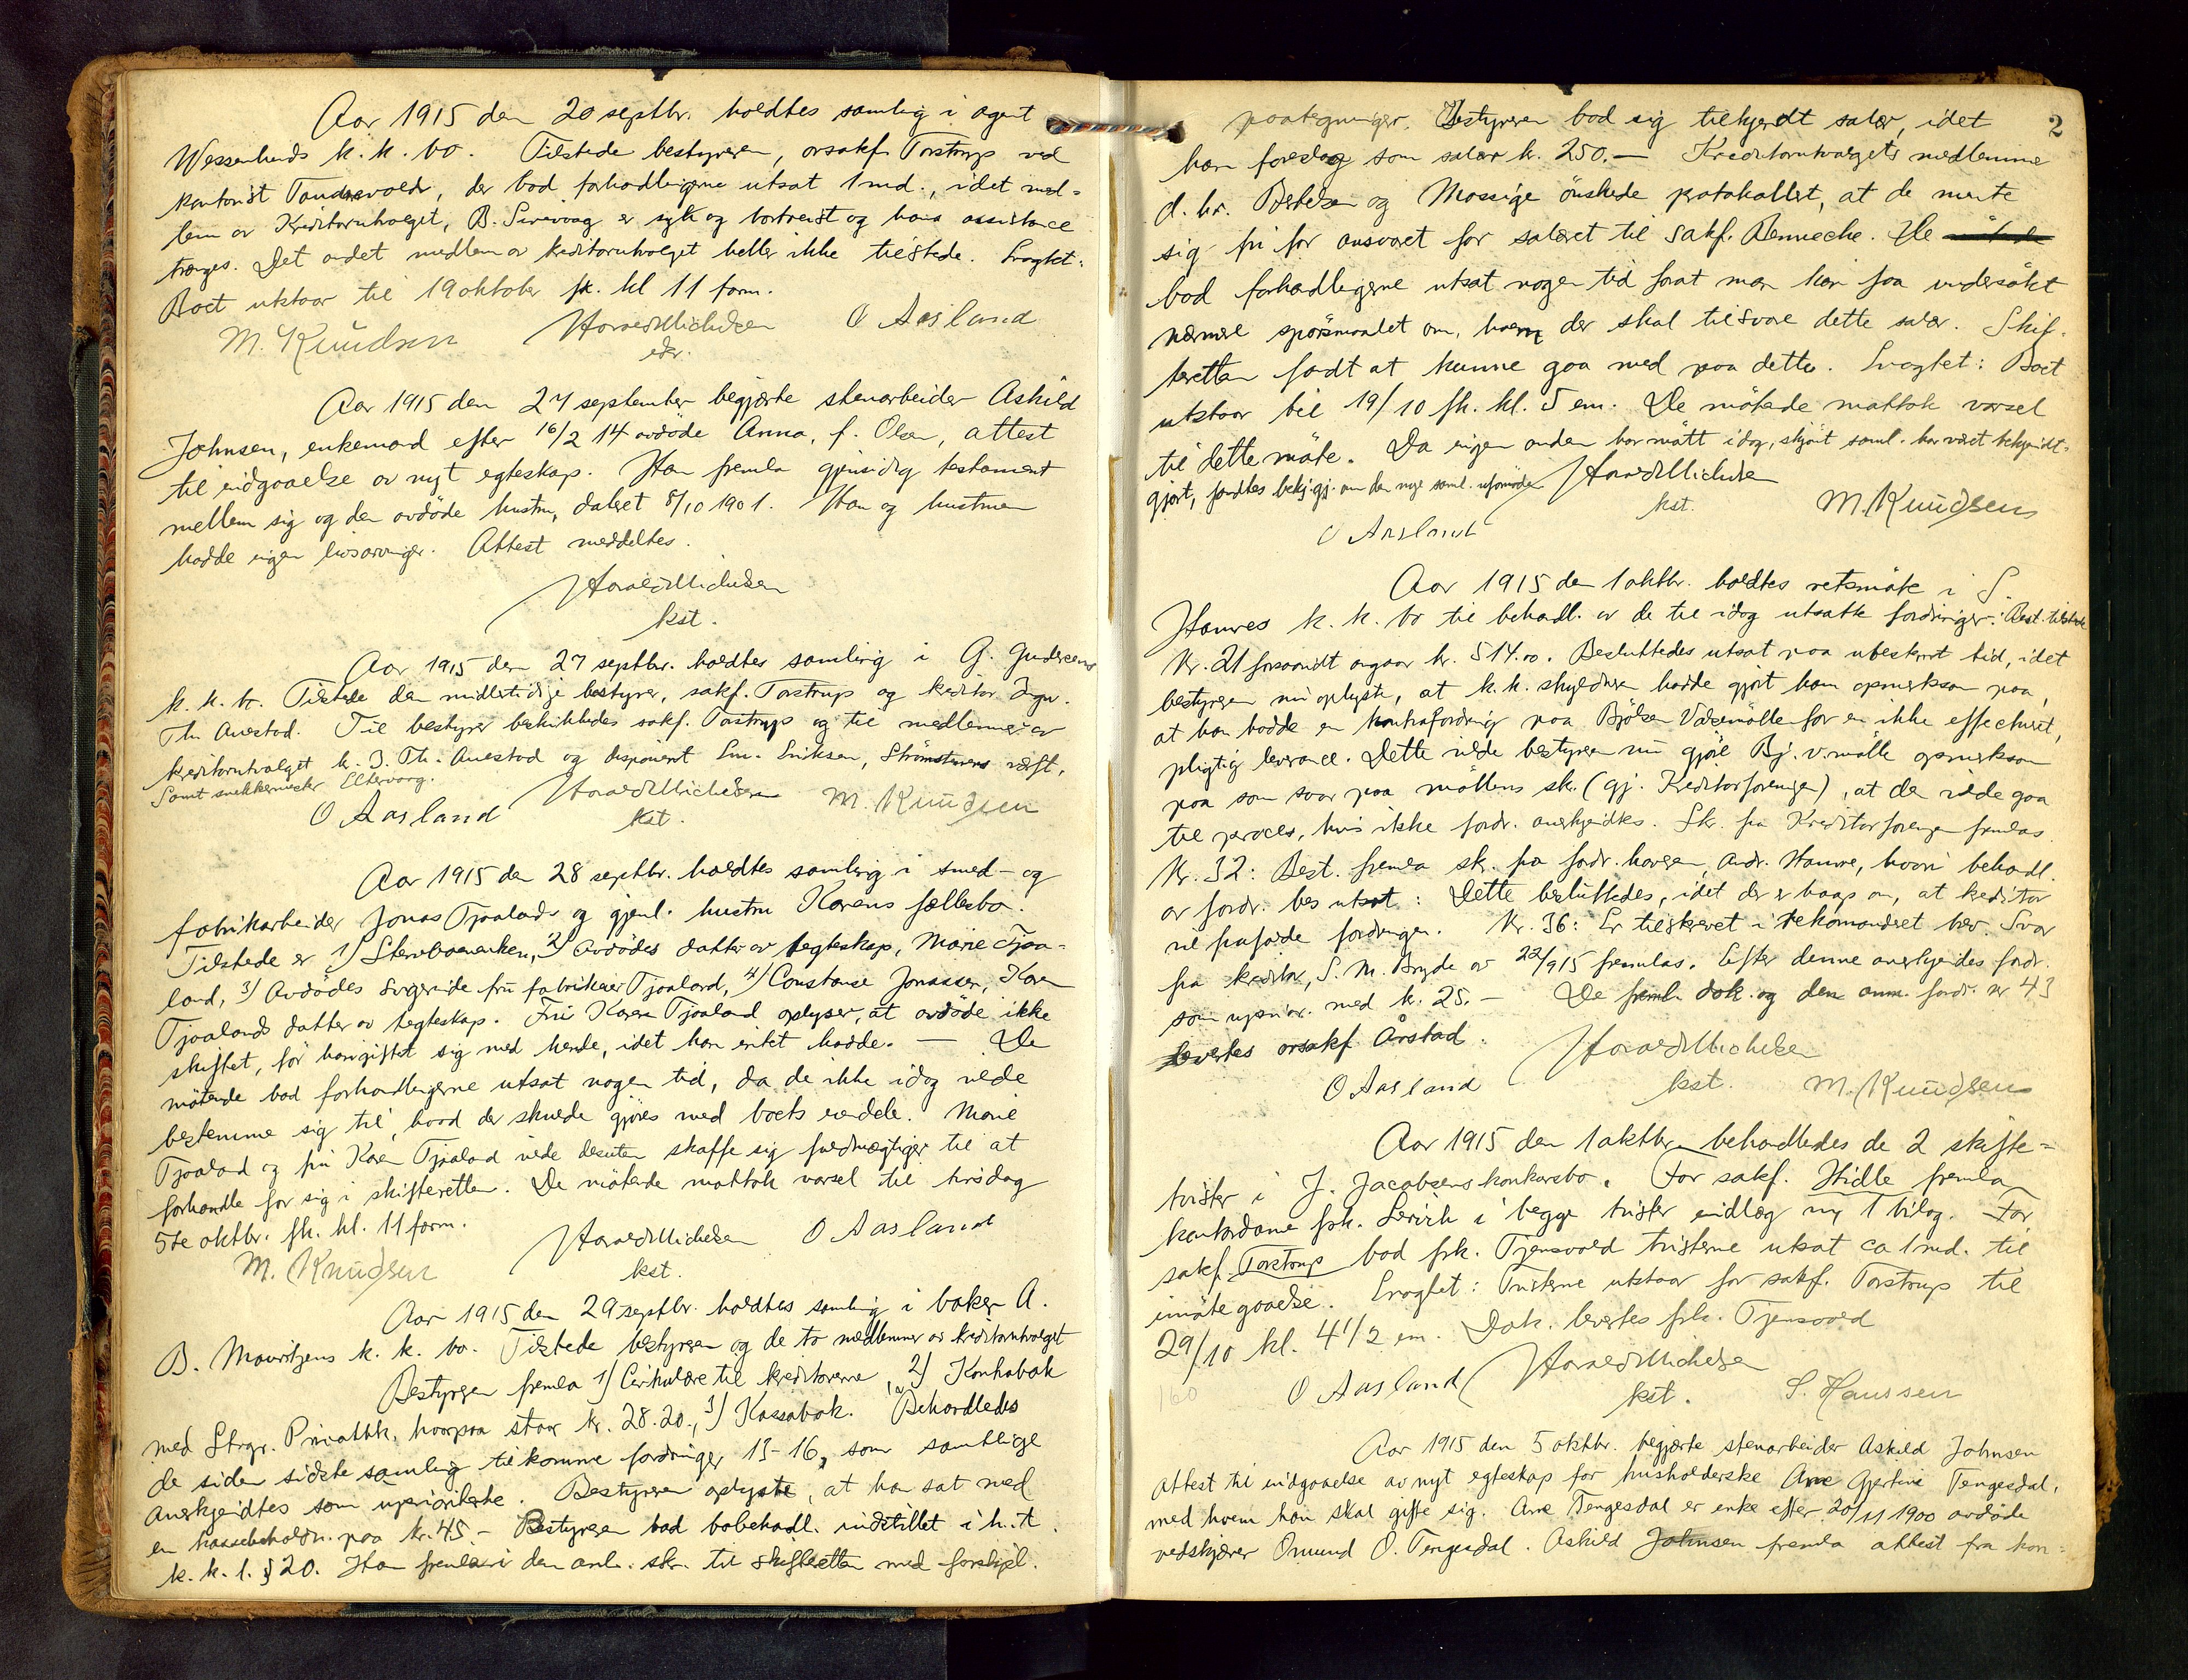 Aar 1915 den 20 septbr. holdtes samling i agent
Wessenbergs k. k. bo. Tilstede bestyreren, orsakf. Torstrup ved
kontorist Tandrevold, der bad forhandlingerne utsat 1 md., idet med-
lem av Kreditorutvalget, B. Sirevaag er syk og bortreist og hans assistance
trænges. Det andet medlem av kreditorutvalget heller ikke tilstede. Eragtet:
Boet utstaar til 19 oktober fk. kl 11 form.
M. Knudsen Harald Michelsen O Aasland
edr.
Aar 1915 den 27 september begjærte stenarbeider Askild
Johnsen, enkemand efter 16/2 14 avdöde Anna, f. Olsen, attest
til indgaaelse av nyt egteskap. Han fremla gjensidig testament
mellem sig og den avdöde hustru, datert 8/10 1901. Han og hustruen
hadde ingen livsarvinger. Attest meddeltes.
Harald Michelsen
kst.
Aar 1915 den 27 septbr. holdtes samling i G. Gundersens
k. k. bo. Tilstede den midlertidige bestyrer, sakf. Torstrup og kreditor Ingv.
Th. Auestad. Til bestyrer beskikkedes sakf. Torstrup og til medlemmer av
kreditorutvalget h. I. Th. Auestad og disponent Em. Eriksen, Strömsteens værft,
Samt snekkermester Eltervaag.
O Aasland Harald Michelsen M. Knudsen
kst.
Aar 1915 den 28 septbr. holdtes samling i smed- og
fabrikarbeider Jonas Tjaalands og gjenl. hustru Karens fællesbo.
Tilstede er 1) Stervboenken, 2) Avdödes datter av 1 egteskap, Marie Tjaa-
land, 3) Avdödes svigerinde fru fabrikeier Tjaaland, 4) Constanse Jonassen, Karen
Tjaalands datter av 1 egteskap. Fru Karen Tjaaland oplyser, at avdöde ikke
skiftet, för han giftet sig med hende, idet han intet hadde. — De
mötende bad forhandlingerne utsat nogen tid, da de ikke idag vilde
bestemme sig til, hvad der skulde gjöres med boets eiendele. Marie
Tjaaland og fru Karen Tjaaland vilde desuten skaffe sig fuldmægtiger til at
forhandle for sig i skifteretten. De mötende mottok varsel til tirsdag
5te oktbr. fk. kl. 11 form.
M. Knudsen Harald Michelsen O Aasland
kst.
Aar 1915 den 29 septbr. holdtes samling i baker A.
B. Mauritzens k. k. bo. Tilstede bestyreren og de to medlemmer av kreditorutvalget
Bestyreren fremla 1) Cirkulære til kreditorerne, 2) Kontrabok
med Strgr. Privatbk. hvorpaa staar kr. 28.20., 3) Kassabok. Behandledes
de siden sidste samling tilkomne fordringer 13-16, som samtlige
anerkjendtes som uprioriterte. Bestyreren oplyste, at han sat med
en kassebeholdn. paa kr. 45.- Bestyreren bad bobehandl. indstillet i h. t.
k. k. l. § 20. Han fremla i den anl. skr. til skifteretten med forskjel.
2
paategninger. Bestyreren bad sig tilkjendt salær, idet
han foreslog som salær kr. 250.— Kreditorutvalgets medlemmer
d. hr. Bertelsen og Mossige önskede protokollert, at de mente
sig fri for ansvaret for salæret til sakf. Bennecke. De
bad forhandlingerne utsat nogen tid forat man kan faa undersökt
nærmere spörsmaalet om, hvem der skal tilsvare dette salær. Skif-
teretten fandt at kunne gaa med paa dette. Eragtet: Boet
utstaar til 19/10 fk. kl. 5 em. De mötende mottok varsel
til dette möte. Da ingen anden har mött idag, skjönt saml. har været bekjendt-
gjort, fandtes bekj.gj. om den nye saml. ufornöden Harald Michelsen
kst. M. Knudsen
O Aasland
Aar 1915 den 1 oktbr. holdtes retsmöte i S.
Hanres k. k. bo til behandl. av de til idag utsatte fordringer. Best. tilstede
Nr. 21 forsaavidt angaar kr. 514.00. Besluttedes utsat paa ubestemt tid, idet
bestyreren nu oplyste, at k. k. skyldneren hadde gjort ham opmerksom paa,
at han hadde en kontrafordring paa Bjölsen Valsemölle for en ikke effectuert,
pligtig leverance. Dette vilde bestyreren nu gjöre Bj. v.mölle opmerksom
paa som svar paa möllens skr. (gj. Kreditorforeningen), at den vilde gaa
til proces, hvis ikke fordr. anerkjendtes. Skr. fra Kreditorforeningen fremlas
Nr. 32: Best. fremla skr. fra fordr.haveren, Andr. Hanne, hvori behandl.
av fordr. bes utsat: Dette besluttedes, idet der er haap om, at kreditor
vil frafalde fordringen. Nr. 36: Er tilskrevet i rekomanderet brev. Svar
fra kreditor, S. M. Bryde av 22/9 15 fremlas. Efter denne anerkjendes fordr.
som uprior. med kr. 25.— De freml. dok. og den anm. fordr. nr 43
levertes orsakf. Årstad.
O Aasland Harald Michelsen
kst. M. Knudsen
Aar 1915 den 1 oktbr. behandledes de 2 skifte-
tvister i J. Jacobsens konkursbo. For sakf. Hidle fremla
kontordame frk. Lervik i begge tvister indlæg m. 1 bilag. For
sakf. Torstrup bad frk. Tjensvold tvisterne utsat ca 1 md. til
imötegaaelse. Eragtet: Tvisterne utstaar for sakf. Torstrup til
29/10 kl. 4 1/2 em. Dok. levertes frk. Tjensvold
160 O Aasland Harald Michelsen
kst. S. Hanssen
Aar 1915 den 5 oktbr. begjærte stenarbeider Askild Johnsen
attest til indgaaelse av nyt egteskap for husholderske Ane Gjertine Tengesdal,
med hvem han skal gifte sig. Ane Tengesdal er enke efter 20/11 1900 avdöde
vedskjærer Omund O. Tengesdal. Askild Johnsen fremla attest fra kon-